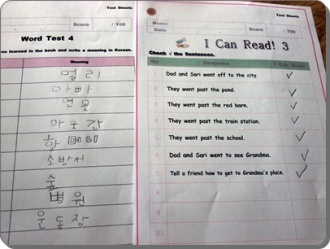 Test Sheets
Score : /100
Word Test 4
learned in the book and write a meaning in Korean.
Meaning
멀리
아빠
연못
마굿간
소방서
숲
병원
운동장
Test Sheets
Name :
Date :
Score : /100
I Can Read! 3
Check √ the Sentences.
No
Sentences
I Can Read!
Dad and Sari went off to the city.
They went past the pond.
They went past the red barn.
They went past the train station.
They went past the school.
Dad and Sari went to see Grandma.
Tell a friend how to get to Grandma's place.
10